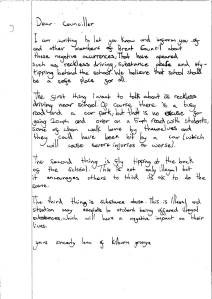 Dear Councillor
I am writing to let you know and inform you
and other members of Brent Council about
those negative occurrences. That have appeared
such as reckless driving, substance abuse and fly-
tipping behind the school. We believe that school should
be a safe place for all.
The first thing I want to talk about is reckless
driving near school. Of course there is a busy
road and a car park, but that is no excuse for
going 20mph and on a 5mph road with students,
Some of whom walk home by themselves and
they could have been hit by a car (which
will cause severe injuries or worse).
The second thing is fly tipping at the back
of the school. This is not only illegal but
it encourages others to think its ok to do the
same.
The third thing is substance abuse. This is illegal and
situation may to students being offered illegal
substances, which will have a negative impact on their
lives.
yours sincerely of Kilburn grange